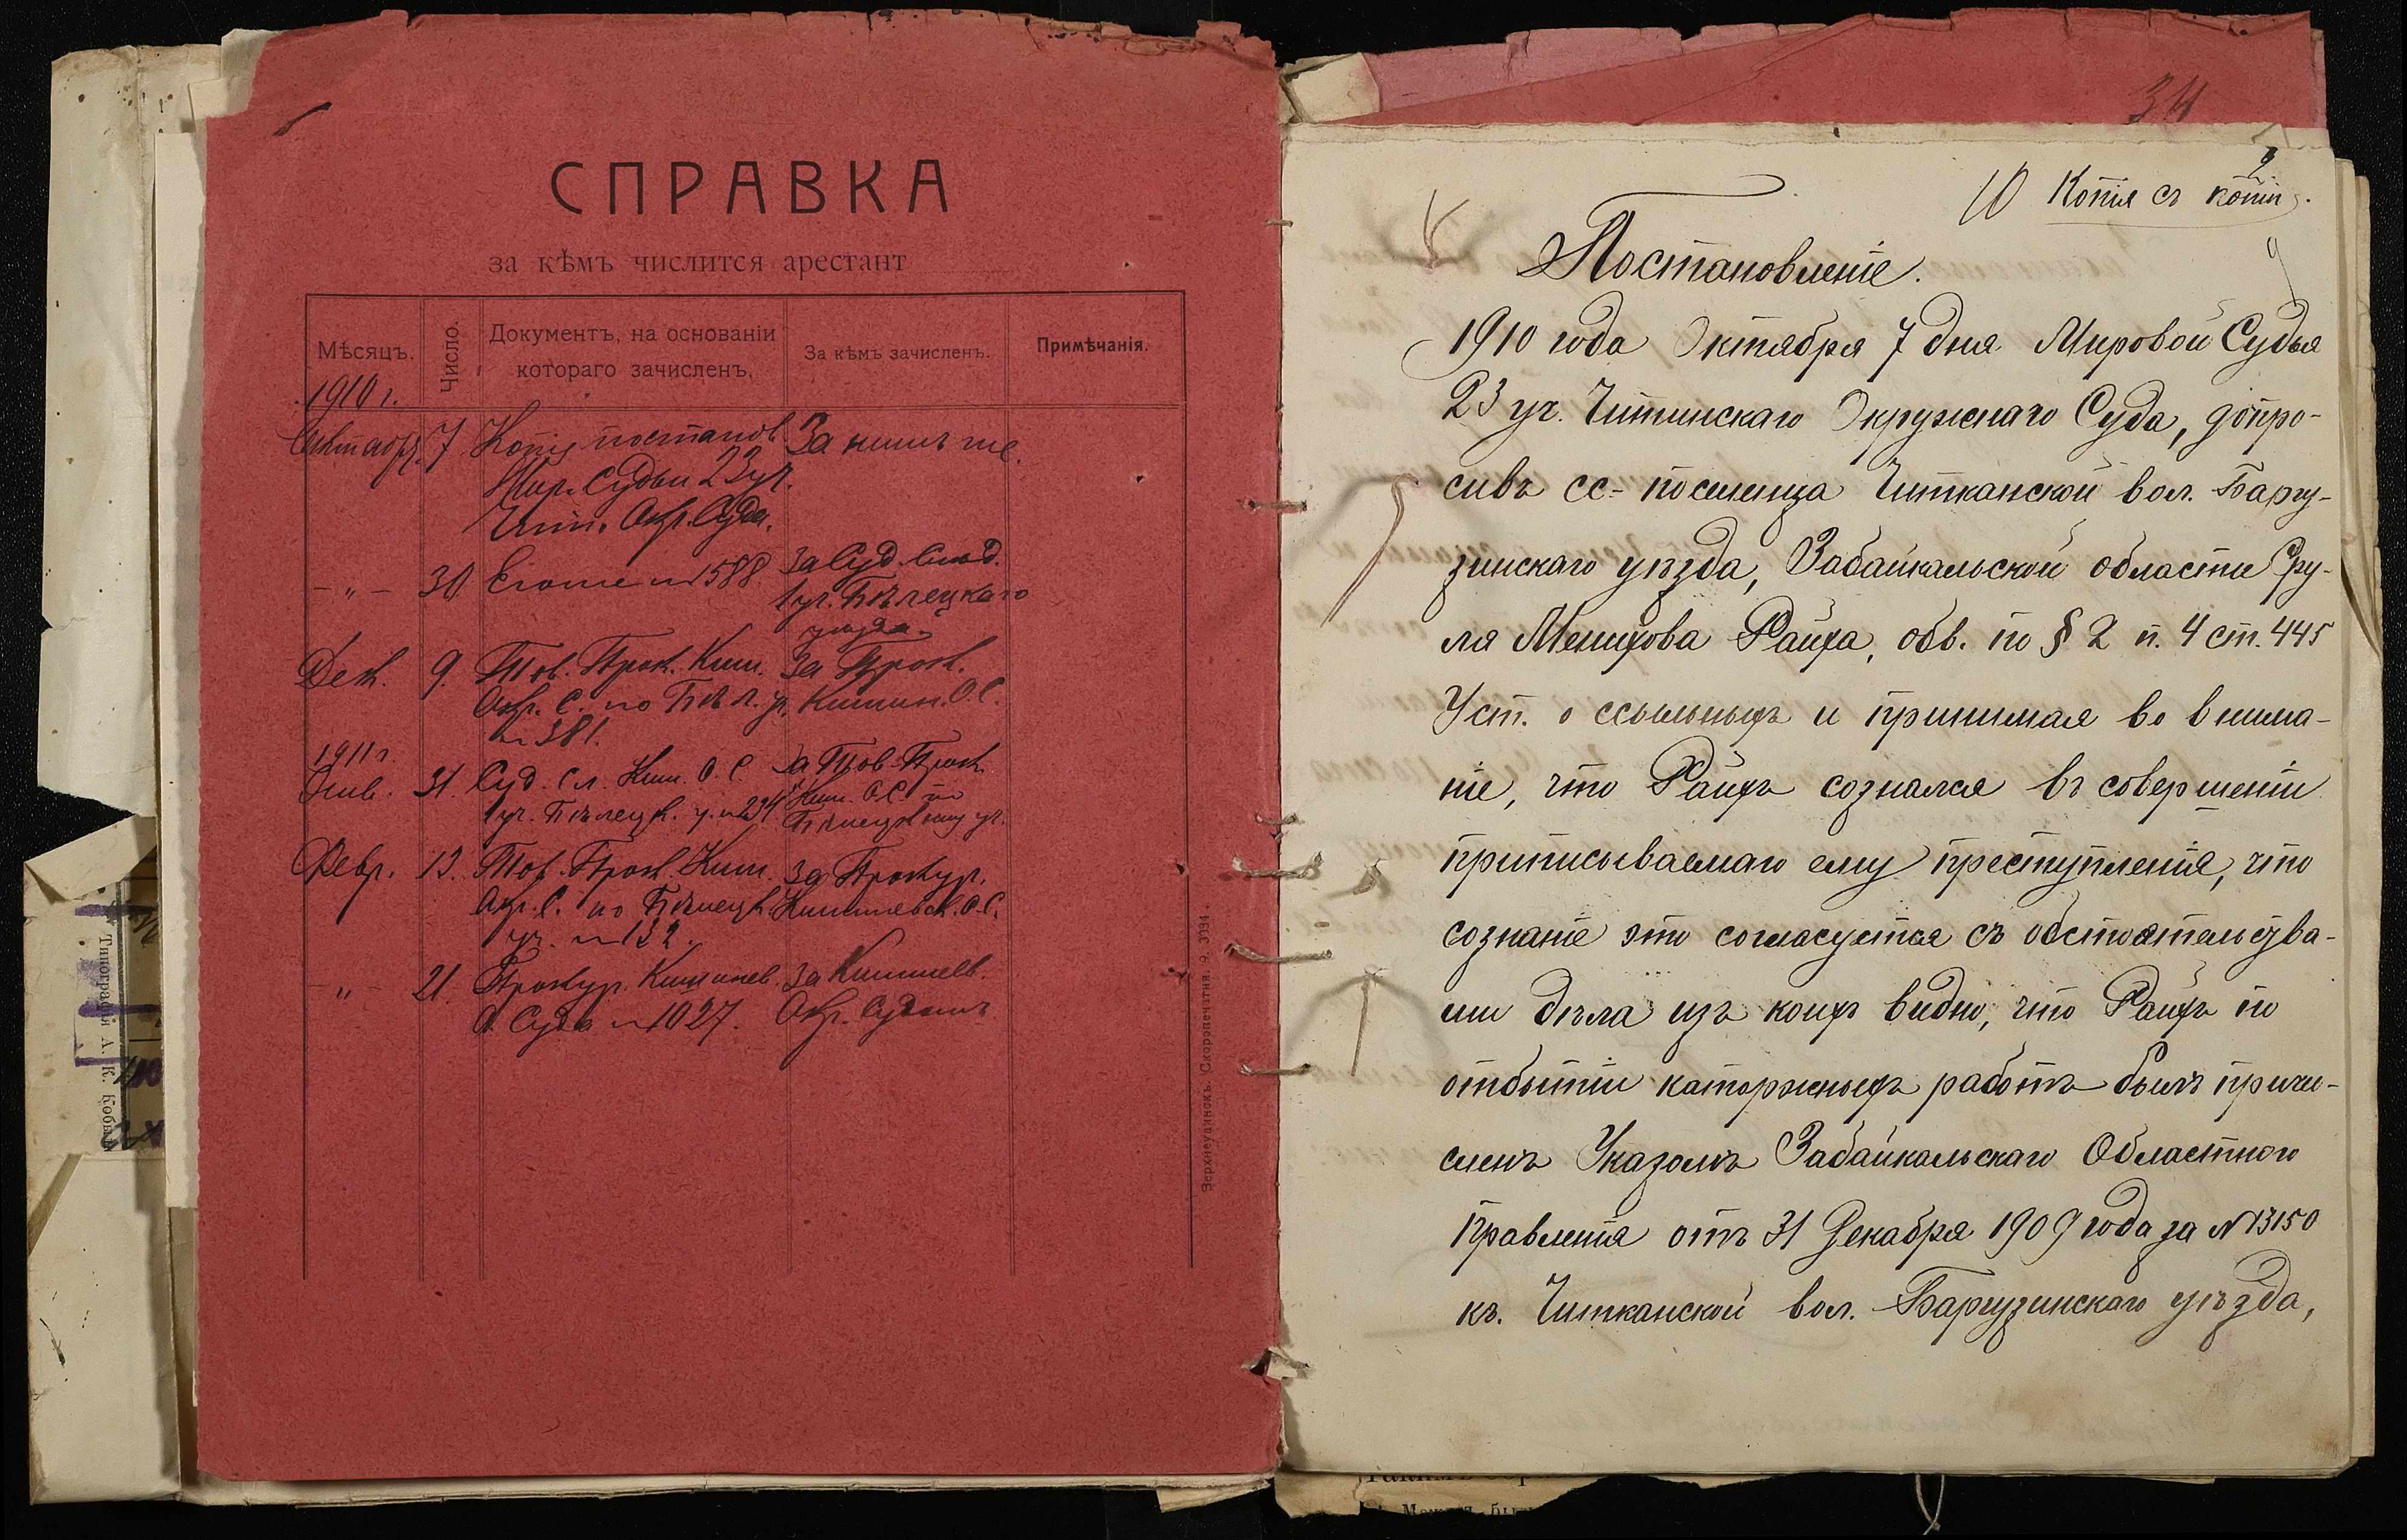 СПРАВКА
за кѣмъ числится арестант
Мѣсяцъ.
Число.
Документъ, на основаніи
котораго зачисленъ.
За кѣмъ зачисленъ.
Примѣчанія.
1910 г.
Октябр. 7 Копія постанов. За нимъ же.
Мир. Судьи 23 уч.
Чит. Окр. Суда.
— " — 30 Его же № 1588. За Суд. Слѣд.
1 уч. Бѣлецкаго
уѣзда.
Дек. 9. Тов. Прок. Киш. За Прок.
Окр. С. по Бѣл. у. Кишин. О. С.
№ 381.
1911 г.
Янв. 31. Суд. Сл. Киш. О. С. За Тов. Прок.
1 уч. Бѣлецк. у. № 294 Киш. О. С. по
Бѣлецкому уч.
Февр. 13. Тов. Прок. Киш. За Прокур.
Окр. С. по Бѣлецк. Кишиневск. О. С.
уч. № 132.
— " — 21. Прокур. Кишинев. За Кишинев.
О. Суда № 1027. Окр. Судомъ
Верхнеудинскъ. Скоропечатня.
Типографія А. К.
34
2
10 Копія съ копіи.
Постановленіе.
1910 года Октября 7 дня Мировой Судья
23 уч. Читинскаго Окружнаго Суда, допро-
сивъ сс-поселенца Читканской вол. Баргу-
зинскаго уѣзда, Забайкальской области Сру-
ля Менихова Райха, обв. по § 2 п. 4 ст. 445
Уст. о ссыльныхъ и принимая во внима-
ніе, что Райхъ сознался въ совершеніи
приписываемаго ему преступленія, что
сознаніе это согласуется съ обстоятельства-
ми дѣла изъ коихъ видно, что Райхъ по
отбытіи каторжныхъ работъ былъ причи-
сленъ Указомъ Забайкальскаго Областного
Правленія отъ 31 Декабря 1909 года за № 13150
къ. Читканской вол. Баргузинскаго уѣзда,